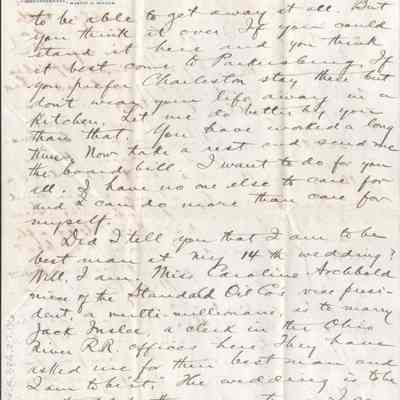 to be able to get away at all. But
you think it over. If you could
stand it here and you think
it best come to Parkersburg. If
you prefer Charleston stay there but
don't wear your life away in a
kitchen. Let me do better by you
than that. You have worked a long
time. Now take a rest and send me
the board bill. I want to do for you
all. I have no one else to care for
and I can do more than care for
myself.
Did I tell you that I am to be
best man at my 14th wedding?
Well, I am. Miss Caroline Archbold
niece of the Standard Oil Co's vice presi-
dent, a multi-millionaire, is to marry
Jack a clerk in the Ohio
River R.R. offices here. They have
asked me for their best man and
I am to be "it". The wedding is to be